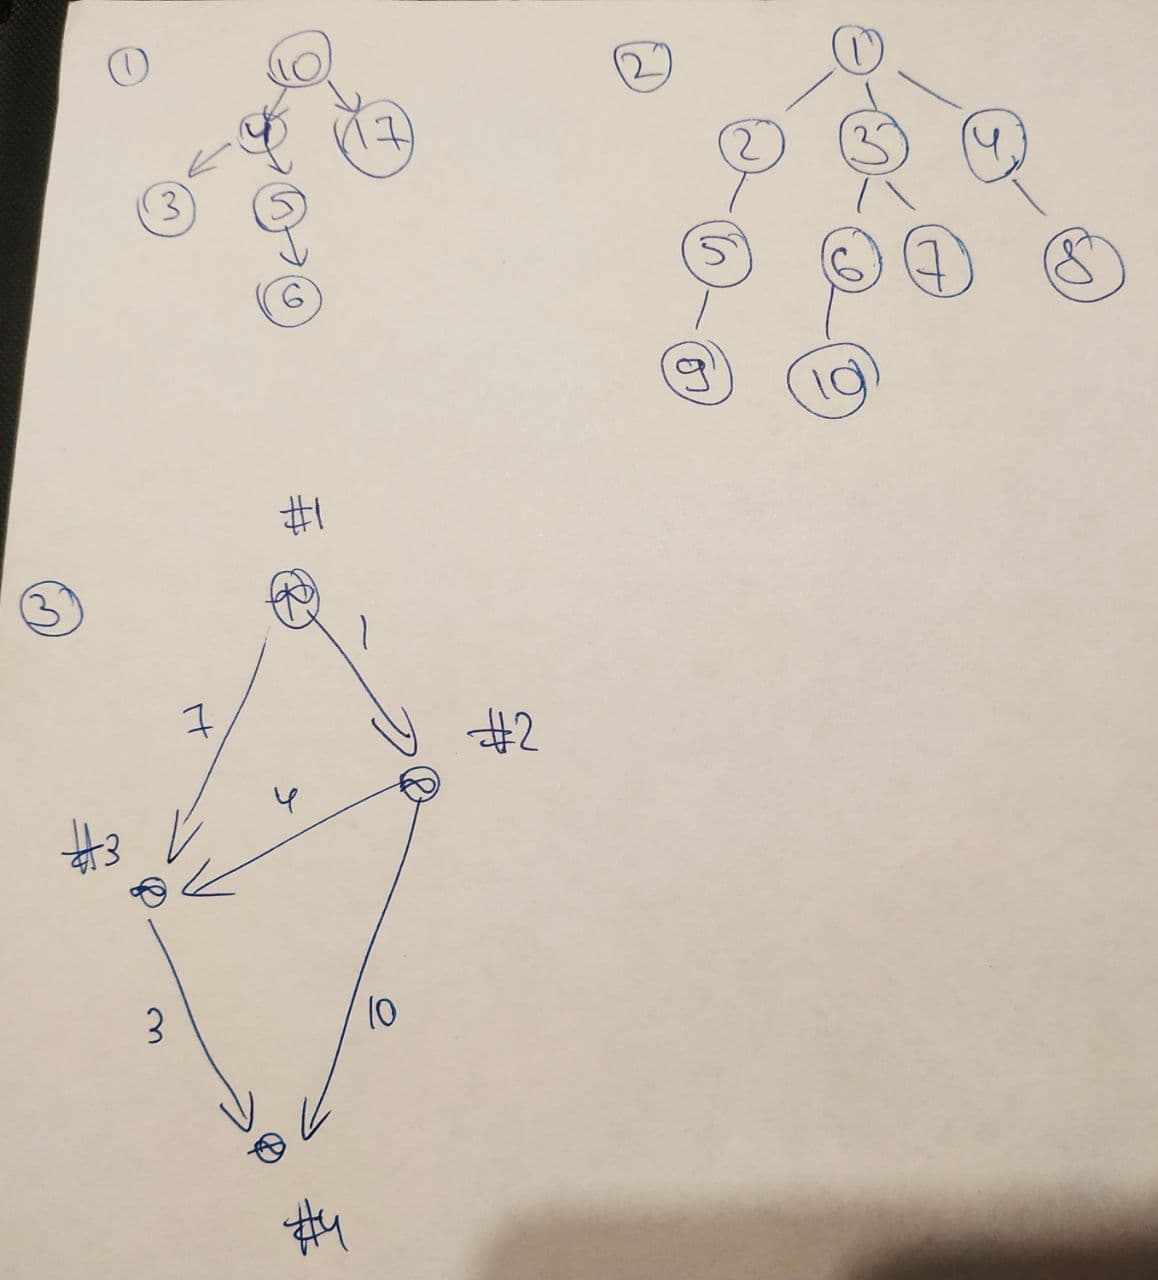 1
10
4 17
3 5
6
2
1
2 3 4
5 6 7 8
9 10
3
#1
∞
7 1
#2
∞
4
#3
∞
3 10
∞
#4